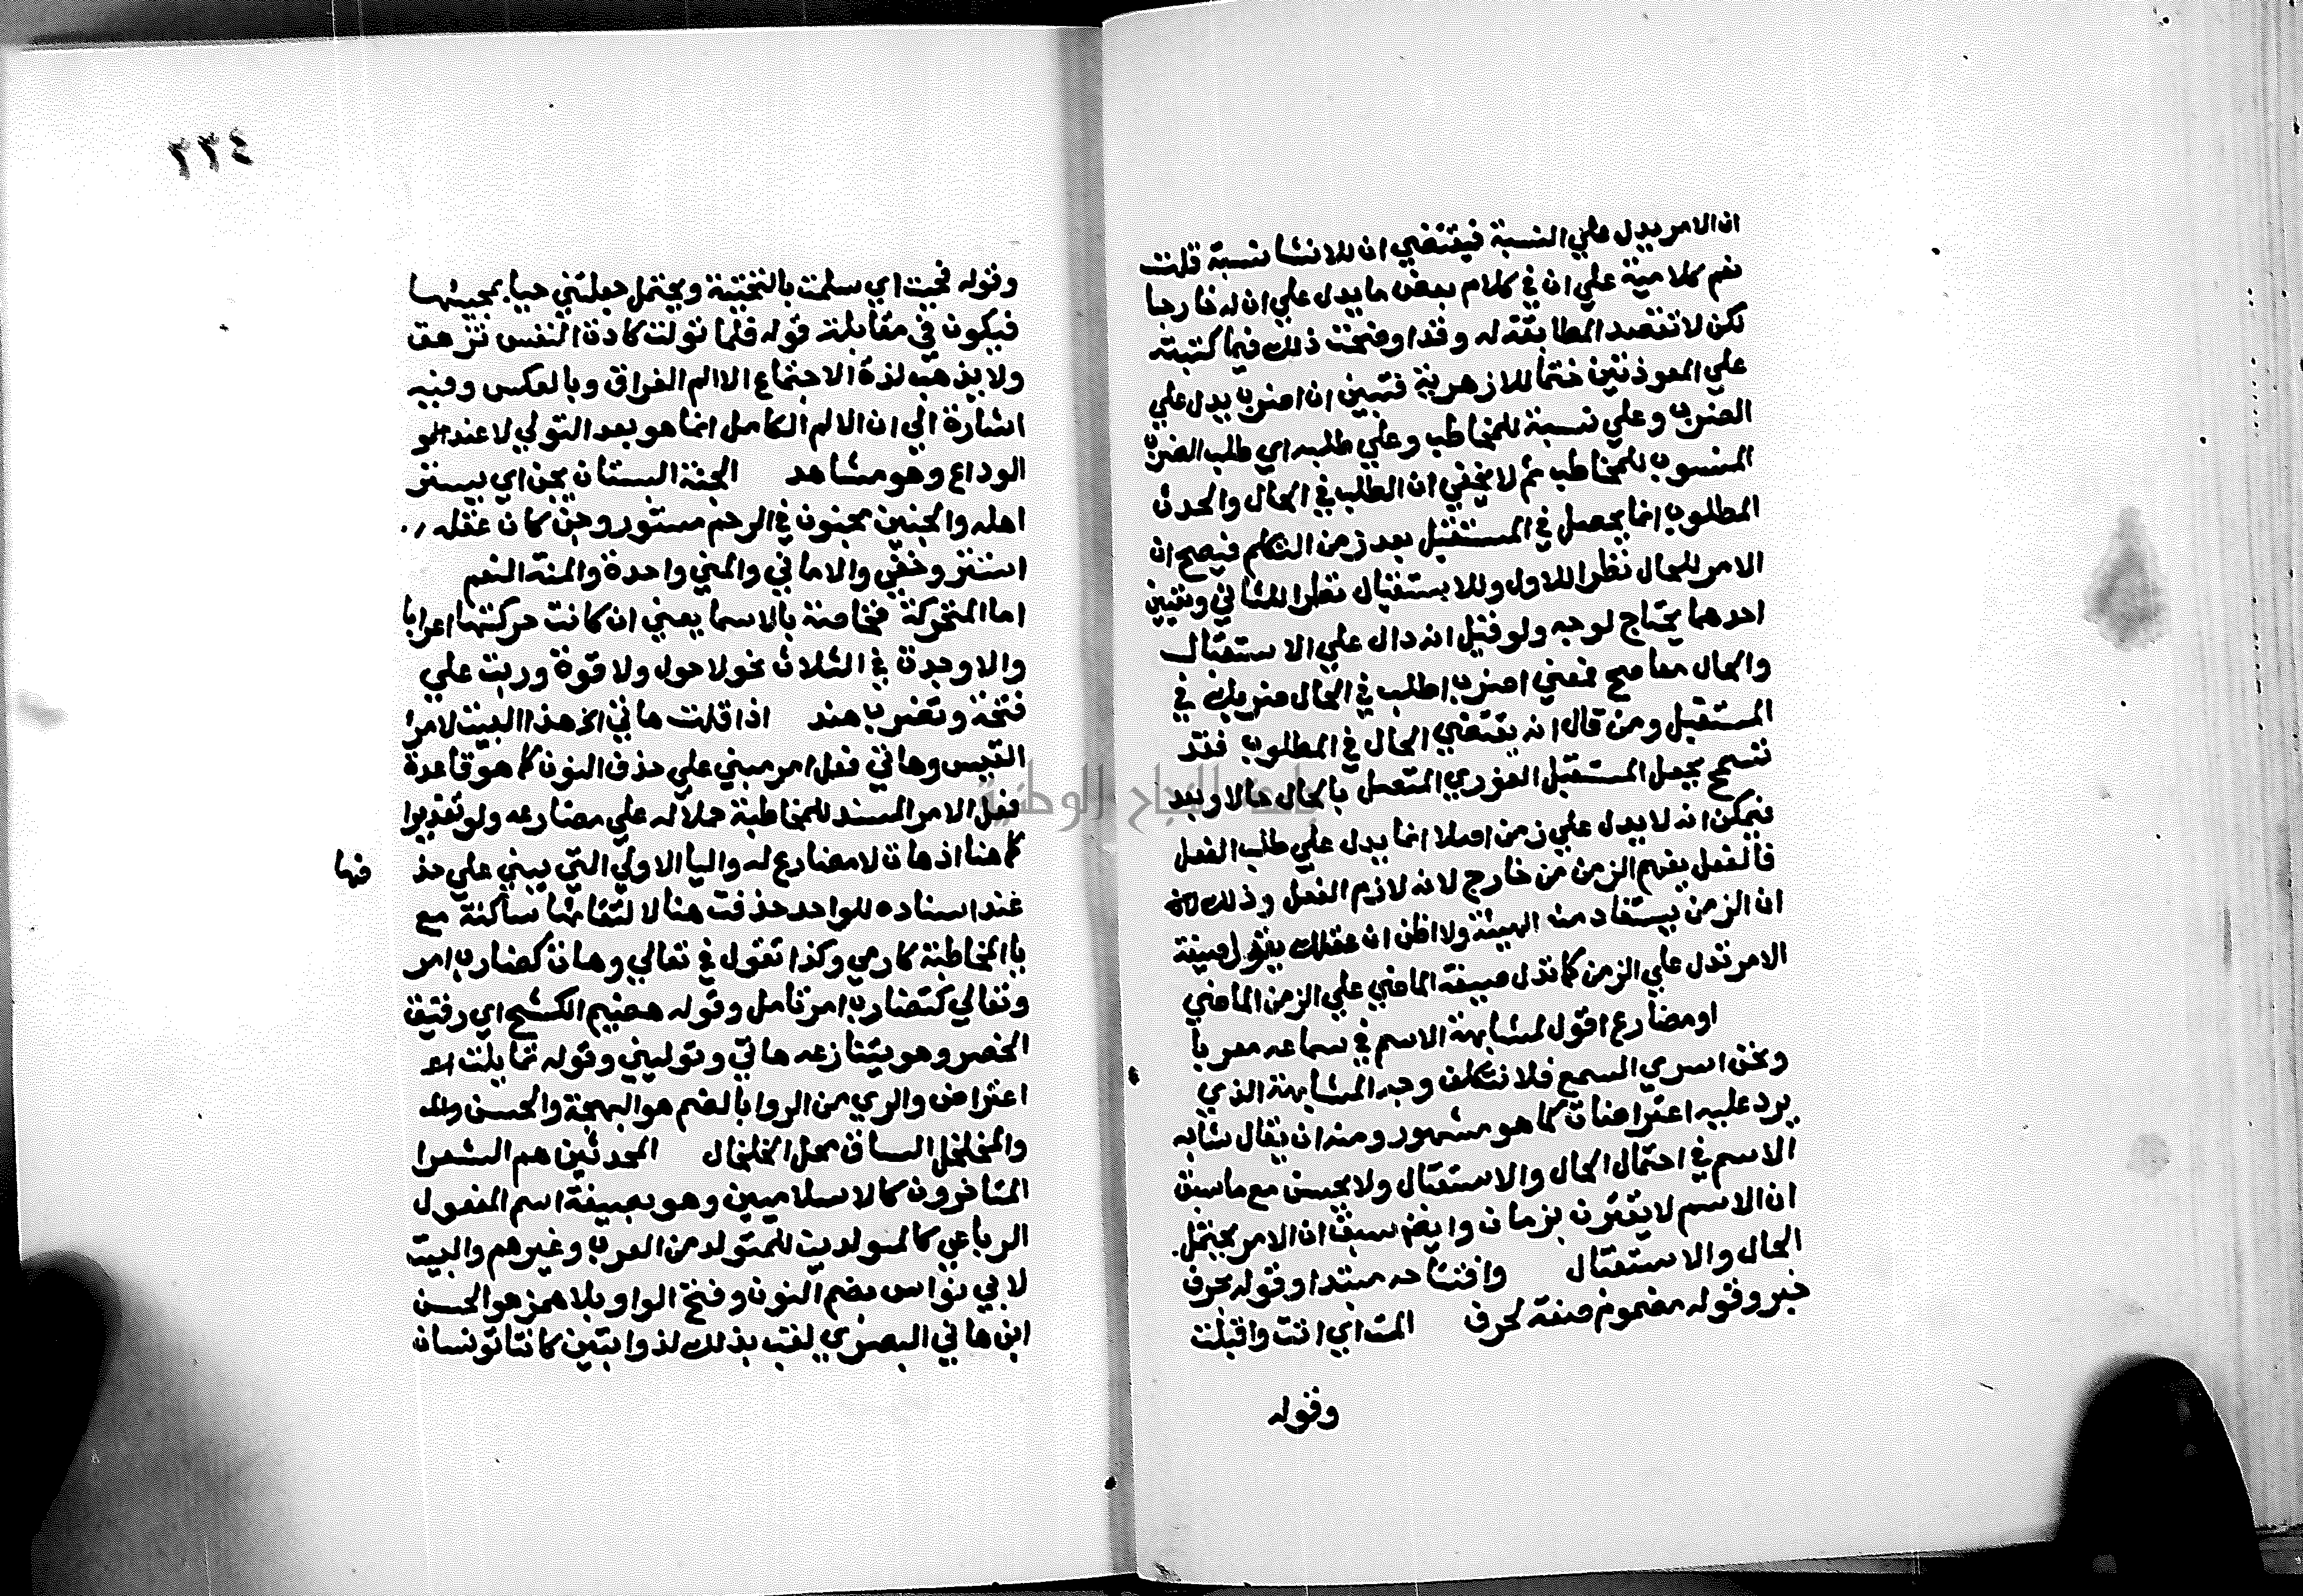 ان الامر يدل علي النسبة فيقتضي ان للانشا نسبة قلت
نعم كلامية علي ان في كلام بعض ما يدل علي ان له خارجا
لكن لا تقصد المطابقة له وقد اوضحت ذلك فيما كتبته
علي المعوذتين ختما للازهرية فتبين ان اضرب يدل علي
الضرب وعلي نسبة للمخاطب وعلي طلبه اي طلب الضرب
المنسوب للمخاطب ثم لا يخفي ان الطلب في الحال والحدث
المطلوب انما يحصل في المستقبل بعد زمن التكلم فيصح ان
الامر للحال نظرا للاول وللاستقبال نظرا للثاني وتعيين
احدهما يحتاج لوجه ولو قيل انه دال علي الاستقبال
والحال معا صح فمعني اضرب اطلب في الحال ضربك في
المستقبل ومن قال انه يقتضي الحال في المطلوب فقد
تسمح بجعل المستقبل الفوري المتصل بالحال حالا وبعد
فيمكن انه لا يدل علي زمن اصلا انما يدل علي طلب الفعل
فالفعل يفهم الزمن من خارج لانه لازم الفعل وذلك
ان الزمن يستفاد من الهيئة ولا اظن ان عقلك يقول صيغة
الامر تدل علي الزمن كما تدل صيغة الماضي علي الزمن الماضي
او مضارع اقول لمشابهة الاسم في سماعه معربا
ونحن اسري السمع فلا نتكلف وجه المشابهة الذي
يرد عليه اعتراضات كما هو مشهور ومنه ان يقال شابه
الاسم في احتمال الحال والاستقبال ولا يحسن مع ماسبق
ان الاسم لا يقترن بزمان وايضا سبق ان الامر يحتمل
الحال والاستقبال وافتتاحه مبتدا وقوله بحرف
خبر وقوله مضموم صفة لحرف المت اي اتت واقبلت
وقوله
٢٣٤
وقوله فحيت اي سلمت بالتحية ويحتمل جعلتني حيا بمجيئها
فيكون في مقابلة قوله فلما تولت كادة النفس تزهق
ولا يذهب لذة الاجتماع الا الم الفراق وبالعكس وفيه
اشارة الي ان الالم الكامل انما هو بعد التولي لا عند
الوداع وهو مشاهد الجنة البستان يجن اي يستر
اهله والجنين مجنون في الرحم مستور وجن كان عقله
استتر وخفي والاماني والمني واحدة والمنة النعم
اما المتحركة فخاصة بالاسما يعني ان كانت حركتها اعرابا
والا وجدت في الثلاث نحو لا حول ولا قوة وربت علي
فتحة وتضرب هند اذا قلت هاتي الخ هذا البيت لامرا
القيس وهاتي فعل امر مبني علي حذف النون كما هو قاعدة
فعل الامر المسند للمخاطبة حملا له علي مضارعه ولو تقديرا
كما هنا اذ هات لا مضارع له واليا الاولي التي يبني علي حذ فها
عند اسناده للواحد حذفت هنا لالتقائها ساكنة مع
يا المخاطبة كارمي وكذا تقول في تعالي وهات كضارب امر
وتعالي كتضارب امر تامل وقوله هضيم الكشح اي رقيق
الخصر وهو يتنازعه هاتي وتوليني وقوله تمايلت
اعتراض والري من الروا بالضم هو البهجة والحسن
والمخلخل الساق محل الخلخال المحدثين هم الشعرا
المتاخرون كالاسلاميين وهو بصيغة اسم المفعول
الرباعي كالمولدين للمتولد من العرب وغيرهم والبيت
لابي نواس بضم النون وفتح الواو بلا همز هو الحسن
ابن هاني البصري لقب بذلك لذوابتين كانتا تونسان